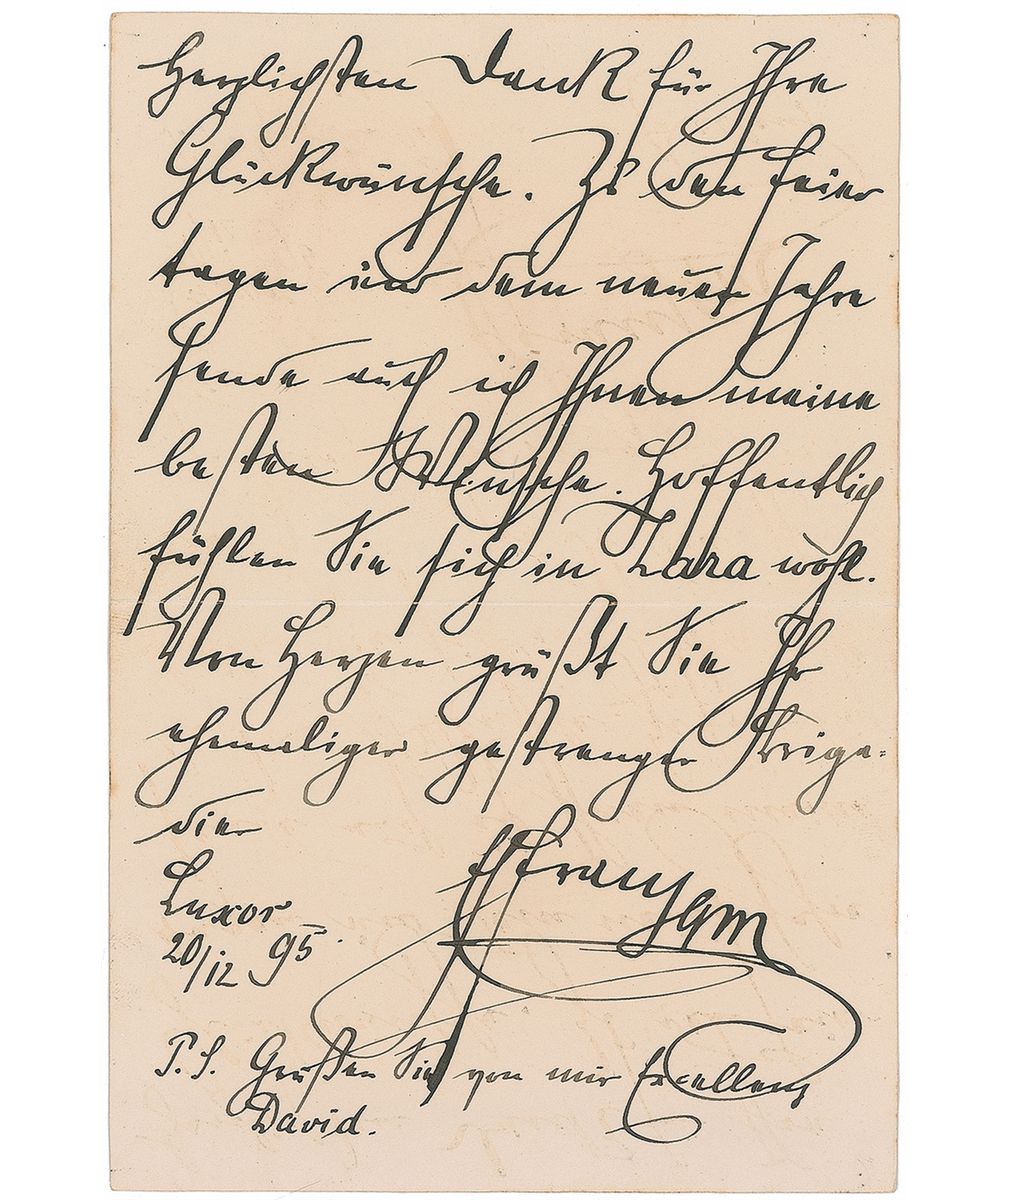 Herzlichsten Dank für Ihre
Glückwünsche. Zu den Feier
tagen und dem neuen Jahre
sende auch ich Ihnen meine
besten Wünsche. Hoffentlich
fühlen Sie sich in Zara wohl.
Von Herzen grüßt Sie Ihr
ehemaliger gestrenger Briga-
dier
Luxor
20/12 95.
P.S. Grüßen Sie von mir Excellenz
David.